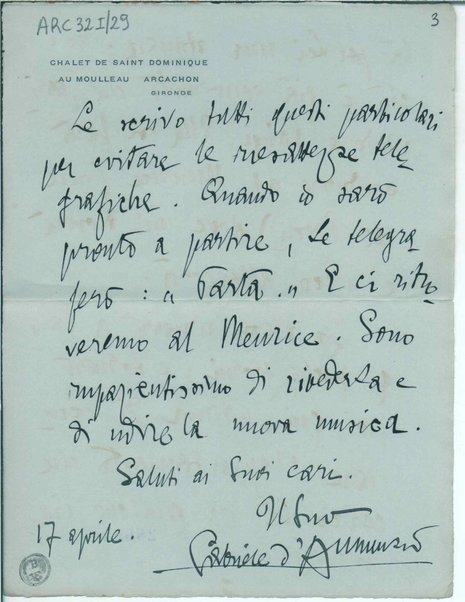 ARC 32 I/29
3
CHALET DE SAINT DOMINIQUE
AU MOULLEAU ARCACHON
GIRONDE
Le scrivo tutti questi particolari
per evitare le inesattezze tele-
grafiche. Quando io sarò
pronto a partire, Le telegra
ferò: "Parto." E ci ritro-
veremo al Meurice. Sono
impazientissimo di rivederLa e
di udire la nuova musica.
Saluti ai Suoi cari.
Il Suo
17 aprile.
Gabriele d'Annunzio